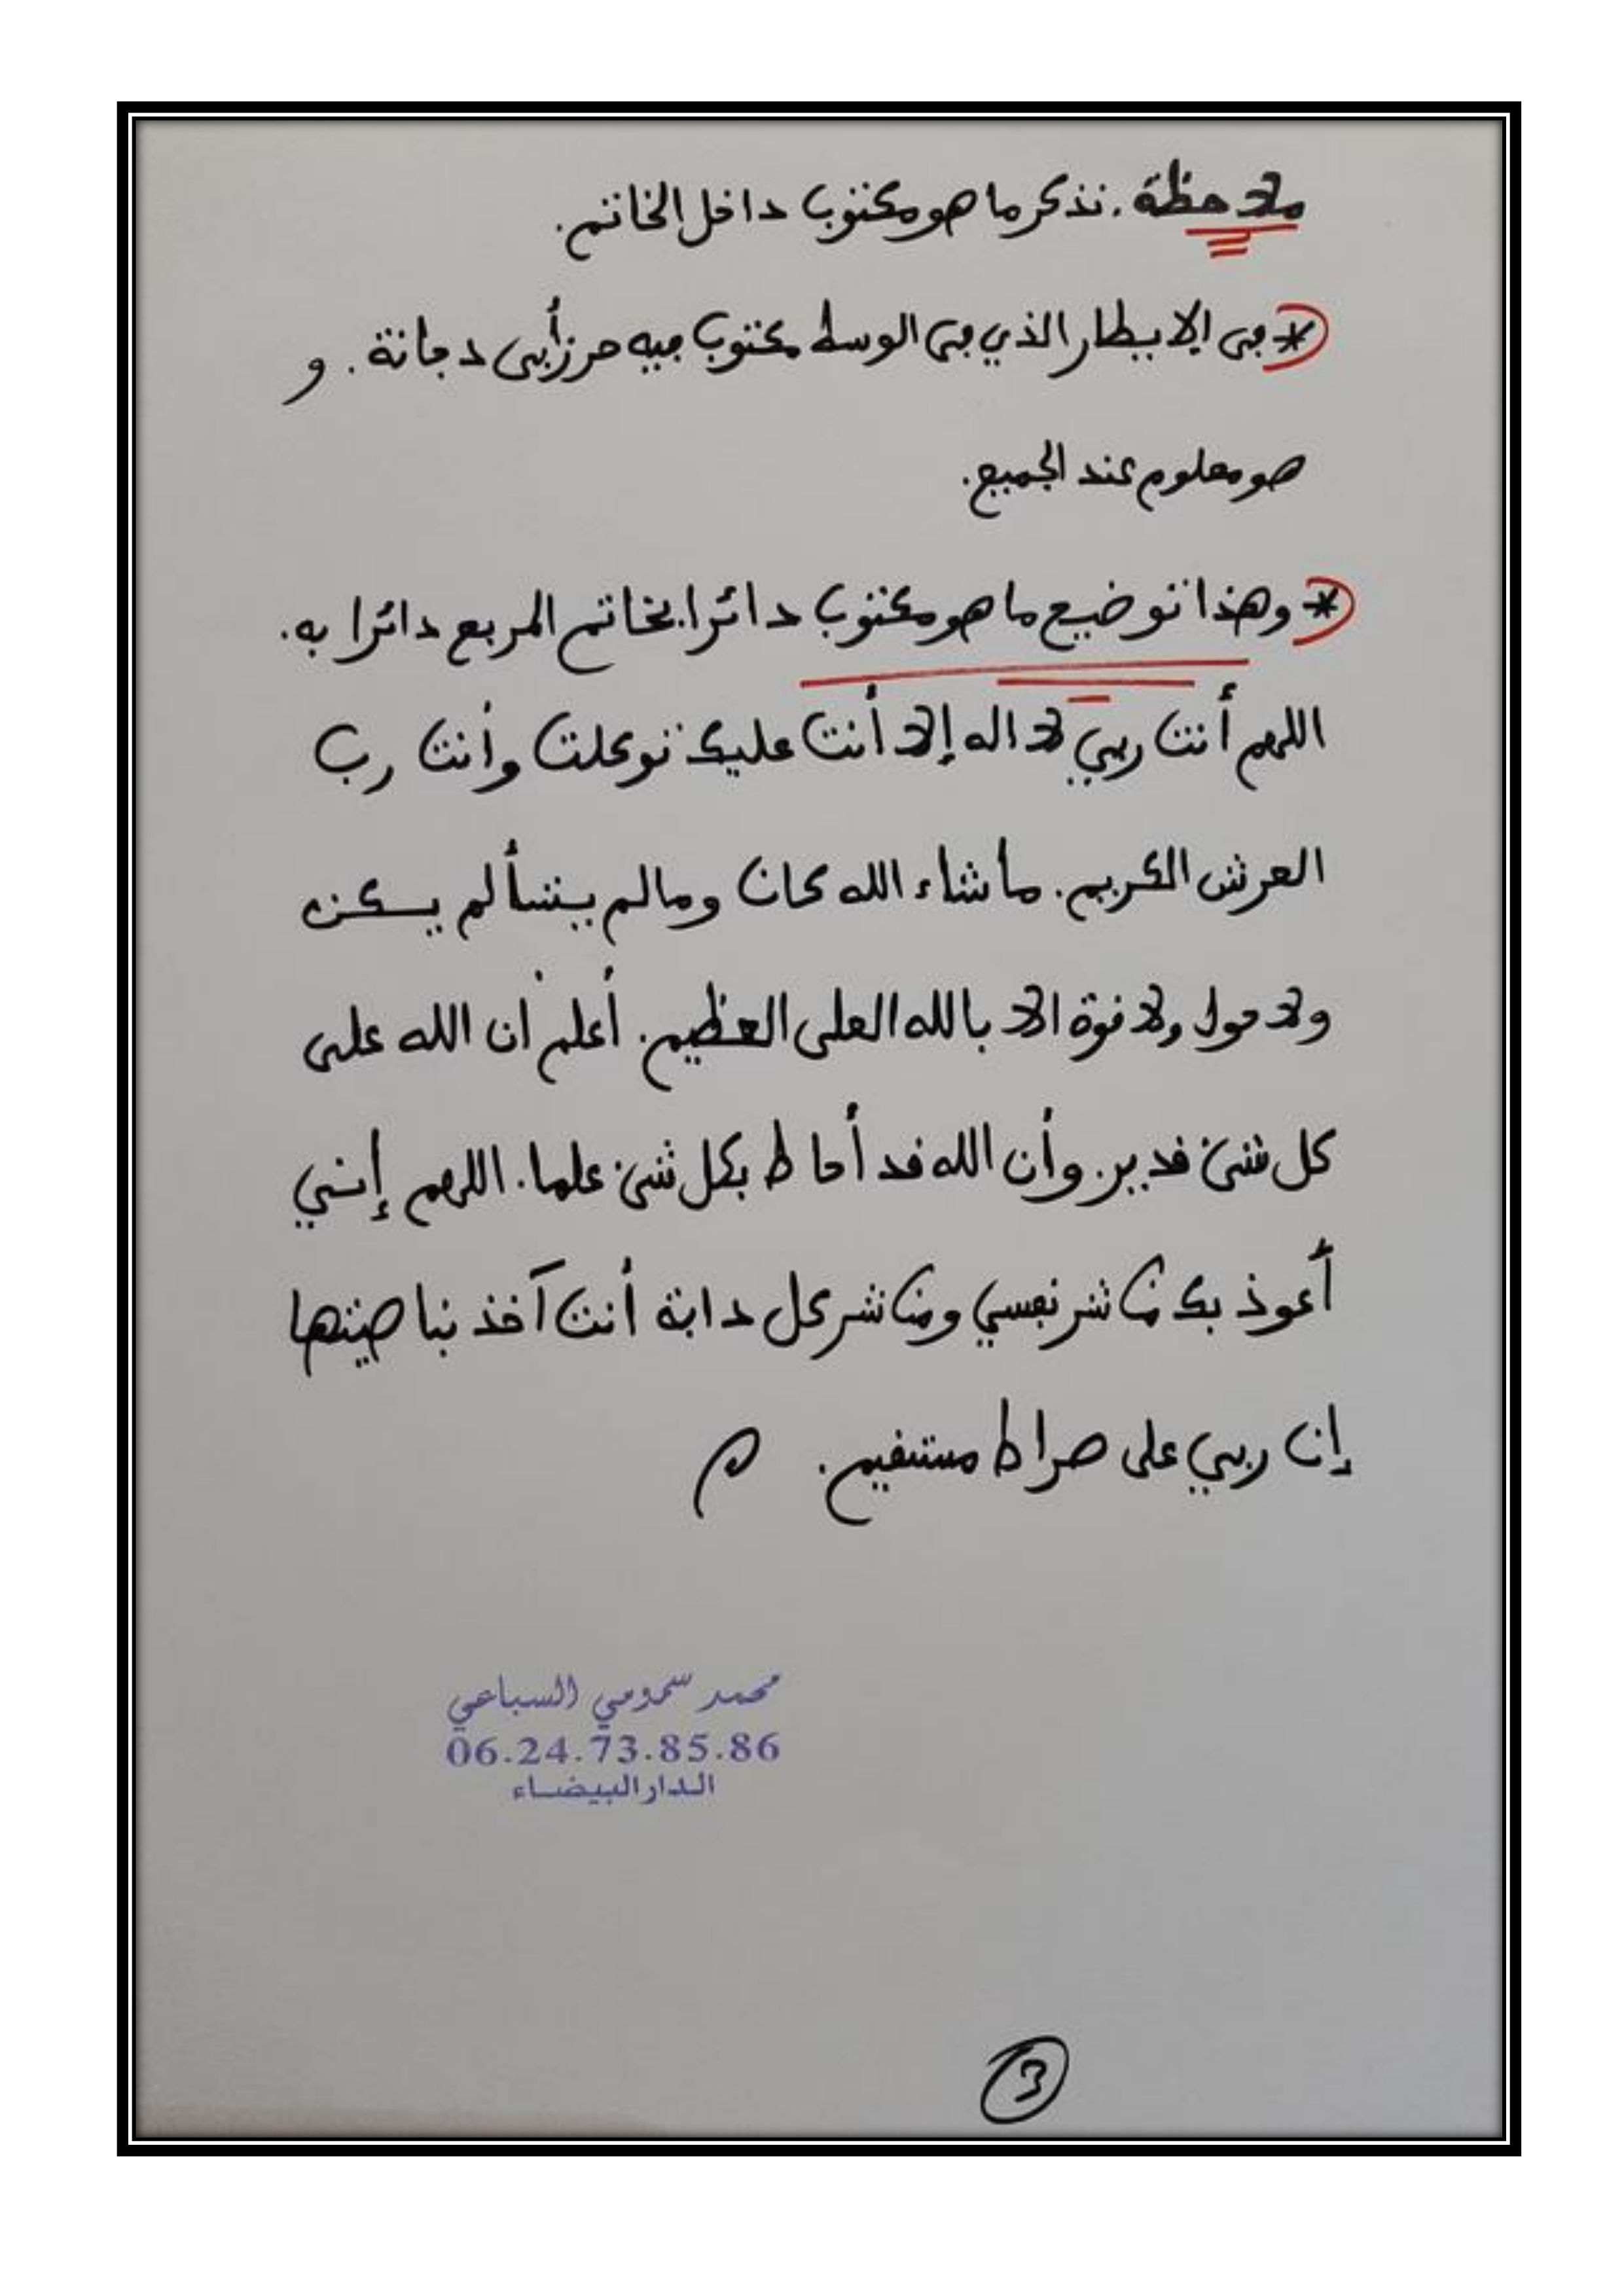 ملاحظة. نذكر ما هو مكتوب داخل الخاتم.
* في الايطار الذي في الوسط مكتوب فيه حرز أبي دجانة. و
هو معلوم عند الجميع.
* وهذا توضيح ما هو مكتوب دائرا بخاتم المربع دائرا به.
اللهم أنت ربي لا اله إلا أنت عليك توكلت وأنت رب
العرش الكريم. ما شاء الله كان وما لم يشأ لم يكن
ولا حول ولا قوة الا بالله العلي العظيم. أعلم أن الله على
كل شيء قدير. وأن الله قد أحاط بكل شيء علما. اللهم إني
أعوذ بك من شر نفسي ومن شر كل دابة أنت آخذ بناصيتها
إن ربي على صراط مستقيم.
محمد سمومي السباعي
06.24.73.85.86
الدار البيضاء
3